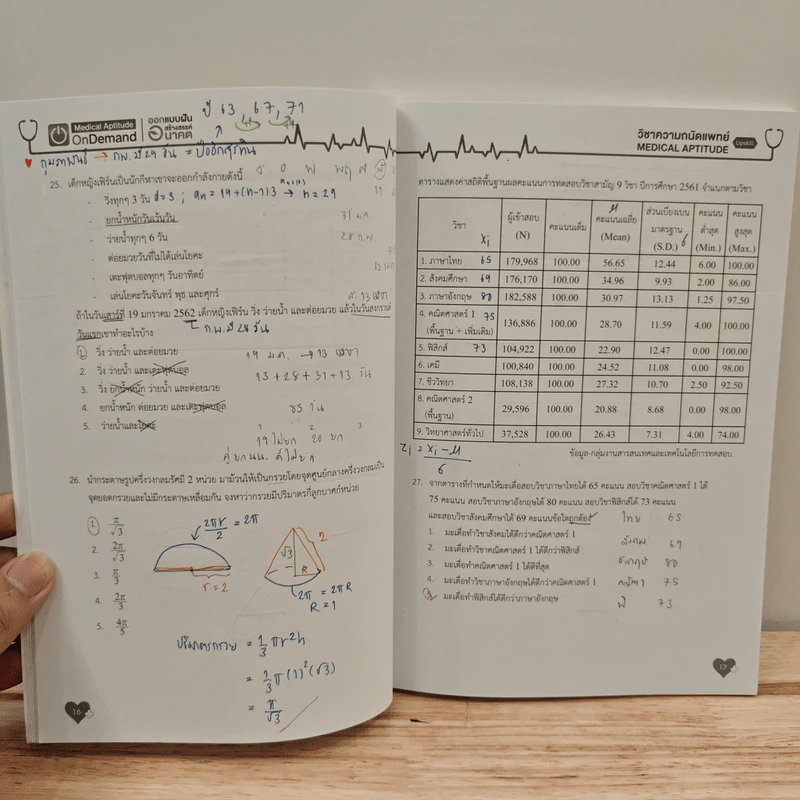 Medical Aptitude
OnDemand
ออกแบบฝัน
สร้างสรรค์
อนาคต
ปี 63, 67, 71
กุมภาพันธ์ → กพ. มี 29 วัน = ปีอธิกสุรทิน
25. เด็กหญิงเฟิร์นเป็นนักกีฬาเขาจะออกกำลังกายดังนี้
- วิ่งทุกๆ 3 วัน d=3 ; an = 19+(n-1)3 → n = 29
- ยกน้ำหนักวันเว้นวัน
31 ม.ค.
- ว่ายน้ำทุกๆ 6 วัน
28 ก.พ.
- ต่อยมวยวันที่ไม่ได้เล่นโยคะ
- เตะฟุตบอลทุกๆ วันอาทิตย์
- เล่นโยคะวันจันทร์ พุธ และศุกร์
ถ้าในวันเสาร์ที่ 19 มกราคม 2562 เด็กหญิงเฟิร์น วิ่ง ว่ายน้ำ และต่อยมวย แล้วในวันสงกรานต์
วันแรกเขาทำอะไรบ้าง
ก.พ. มี 28 วัน
1 วิ่ง ว่ายน้ำ และต่อยมวย
19 ม.ค. → 13 เมษา
2. วิ่ง ว่ายน้ำ และเตะฟุตบอล
13 + 28 + 31 + 13 วัน
3. วิ่ง ยกน้ำหนัก ว่ายน้ำ และต่อยมวย
4. ยกน้ำหนัก ต่อยมวย และเตะฟุตบอล
85 วัน
5. ว่ายน้ำและโยคะ
1 2 3
19 ไม่ยก 20 ยก
26. นำกระดาษรูปครึ่งวงกลมรัศมี 2 หน่วย มาม้วนให้เป็นกรวยโดยจุดศูนย์กลางครึ่งวงกลมเป็น
จุดยอดกรวยและไม่มีกระดาษเหลื่อมกัน จงหาว่ากรวยมีปริมาตรกี่ลูกบาศก์หน่วย
1. π/√3
2. 2π/√3
3. π/3
4. 2π/3
5. 4π/5
2πr/2 = 2π
r = 2
√3
2
R
2π = 2πR
R = 1
ปริมาตรกรวย = 1/3 πr²h
= 1/3 π (1)² (√3)
= π/√3
16
วิชาความถนัดแพทย์
MEDICAL APTITUDE
Upskill
ตารางแสดงค่าสถิติพื้นฐานผลคะแนนการทดสอบวิชาสามัญ 9 วิชา ปีการศึกษา 2561 จำแนกตามวิชา
วิชา xi ผู้เข้าสอบ (N) คะแนนเต็ม μ คะแนนเฉลี่ย (Mean) ส่วนเบี่ยงเบนมาตรฐาน (S.D.) 6 คะแนนต่ำสุด (Min.) คะแนนสูงสุด (Max.)
1. ภาษาไทย 65 179,968 100.00 56.65 12.44 6.00 100.00
2. สังคมศึกษา 69 176,170 100.00 34.96 9.93 2.00 86.00
3. ภาษาอังกฤษ 80 182,588 100.00 30.97 13.13 1.25 97.50
4. คณิตศาสตร์ 1 75
(พื้นฐาน + เพิ่มเติม) 136,886 100.00 28.70 11.59 4.00 100.00
5. ฟิสิกส์ 73 104,922 100.00 22.90 12.47 0.00 100.00
6. เคมี 100,840 100.00 24.52 11.08 0.00 98.00
7. ชีววิทยา 108,138 100.00 27.32 10.70 2.50 92.50
8. คณิตศาสตร์ 2
(พื้นฐาน) 29,596 100.00 20.88 8.68 0.00 98.00
9. วิทยาศาสตร์ทั่วไป 37,528 100.00 26.43 7.31 4.00 74.00
zi = xi - μ / 6
ข้อมูล-กลุ่มงานสารสนเทศและเทคโนโลยีการทดสอบ
27. จากตารางที่กำหนดให้มะเดื่อสอบวิชาภาษาไทยได้ 65 คะแนน สอบวิชาคณิตศาสตร์ 1 ได้
75 คะแนน สอบวิชาภาษาอังกฤษได้ 80 คะแนน สอบวิชาฟิสิกส์ได้ 73 คะแนน
และสอบวิชาสังคมศึกษาได้ 69 คะแนนข้อใดถูกต้อง
ไทย 65
1. มะเดื่อทำวิชาสังคมได้ดีกว่าคณิตศาสตร์ 1
สังคม 69
2. มะเดื่อทำวิชาคณิตศาสตร์ 1 ได้ดีกว่าฟิสิกส์
3. มะเดื่อทำคณิตศาสตร์ 1 ได้ดีที่สุด
อังกฤษ 80
4. มะเดื่อทำวิชาภาษาอังกฤษได้ดีกว่าคณิตศาสตร์ 1
คณิต 1 75
5. มะเดื่อทำฟิสิกส์ได้ดีกว่าภาษาอังกฤษ
ฟิ 73
17